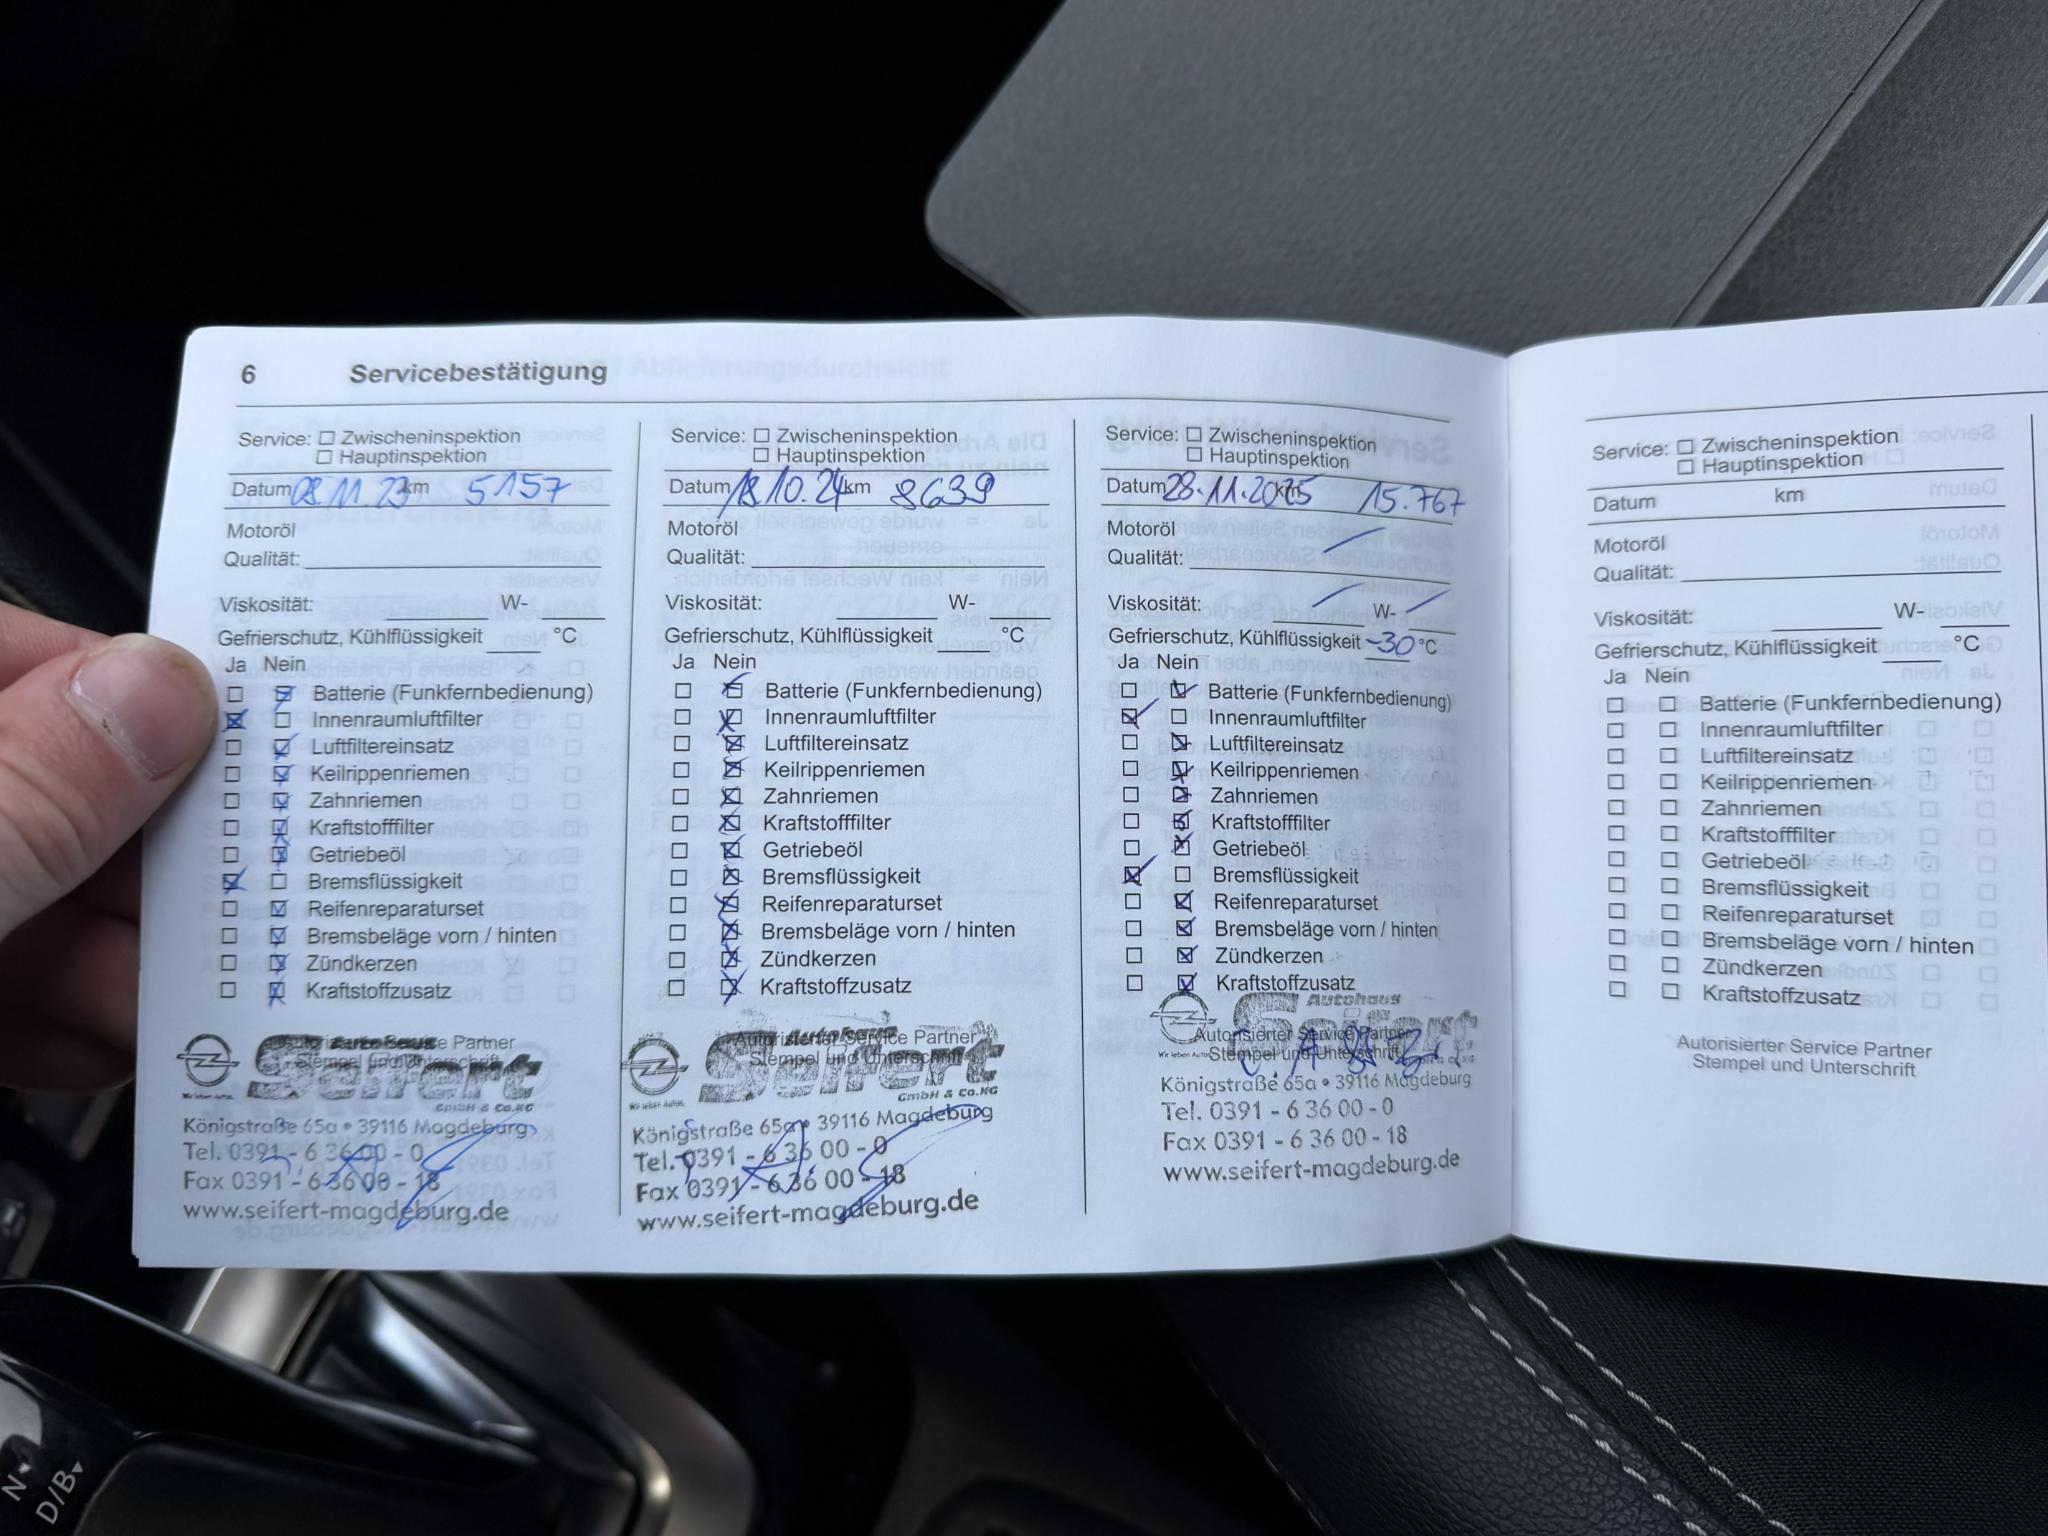 6 Servicebestätigung
Service: ☐ Zwischeninspektion
☐ Hauptinspektion
Datum 08.11.23 km 5157
Motoröl
Qualität:
Viskosität: W-
Gefrierschutz, Kühlflüssigkeit °C
Ja Nein
☐ ☒ Batterie (Funkfernbedienung)
☒ ☐ Innenraumluftfilter
☐ ☒ Luftfiltereinsatz
☐ ☒ Keilrippenriemen
☐ ☒ Zahnriemen
☐ ☒ Kraftstofffilter
☐ ☒ Getriebeöl
☒ ☐ Bremsflüssigkeit
☐ ☒ Reifenreparaturset
☐ ☒ Bremsbeläge vorn / hinten
☐ ☒ Zündkerzen
☐ ☒ Kraftstoffzusatz
Autorisierter Service Partner
Stempel und Unterschrift
Autohaus
Seifert
GmbH & Co.KG
Wir leben Autos.
Königstraße 65a • 39116 Magdeburg
Tel. 0391 - 6 36 00 - 0
Fax 0391 - 6 36 00 - 18
www.seifert-magdeburg.de
Service: ☐ Zwischeninspektion
☐ Hauptinspektion
Datum 18.10.24 km 8639
Motoröl
Qualität:
Viskosität: W-
Gefrierschutz, Kühlflüssigkeit °C
Ja Nein
☐ ☒ Batterie (Funkfernbedienung)
☐ ☒ Innenraumluftfilter
☐ ☒ Luftfiltereinsatz
☐ ☒ Keilrippenriemen
☐ ☒ Zahnriemen
☐ ☒ Kraftstofffilter
☐ ☒ Getriebeöl
☐ ☒ Bremsflüssigkeit
☐ ☒ Reifenreparaturset
☐ ☒ Bremsbeläge vorn / hinten
☐ ☒ Zündkerzen
☐ ☒ Kraftstoffzusatz
Autorisierter Service Partner
Stempel und Unterschrift
Autohaus
Seifert
GmbH & Co.KG
Wir leben Autos.
Königstraße 65a • 39116 Magdeburg
Tel. 0391 - 6 36 00 - 0
Fax 0391 - 6 36 00 - 18
www.seifert-magdeburg.de
Service: ☐ Zwischeninspektion
☐ Hauptinspektion
Datum 28.11.2025 km 15.767
Motoröl
Qualität:
Viskosität: W-
Gefrierschutz, Kühlflüssigkeit -30 °C
Ja Nein
☐ ☒ Batterie (Funkfernbedienung)
☒ ☐ Innenraumluftfilter
☐ ☒ Luftfiltereinsatz
☐ ☒ Keilrippenriemen
☐ ☒ Zahnriemen
☐ ☒ Kraftstofffilter
☐ ☒ Getriebeöl
☒ ☐ Bremsflüssigkeit
☐ ☒ Reifenreparaturset
☐ ☒ Bremsbeläge vorn / hinten
☐ ☒ Zündkerzen
☐ ☒ Kraftstoffzusatz
Autohaus
Seifert
Autorisierter Service Partner
Stempel und Unterschrift
Wir leben Autos.
Königstraße 65a • 39116 Magdeburg
Tel. 0391 - 6 36 00 - 0
Fax 0391 - 6 36 00 - 18
www.seifert-magdeburg.de
Service: ☐ Zwischeninspektion
☐ Hauptinspektion
Datum km
Motoröl
Qualität:
Viskosität: W-
Gefrierschutz, Kühlflüssigkeit °C
Ja Nein
☐ ☐ Batterie (Funkfernbedienung)
☐ ☐ Innenraumluftfilter
☐ ☐ Luftfiltereinsatz
☐ ☐ Keilrippenriemen
☐ ☐ Zahnriemen
☐ ☐ Kraftstofffilter
☐ ☐ Getriebeöl
☐ ☐ Bremsflüssigkeit
☐ ☐ Reifenreparaturset
☐ ☐ Bremsbeläge vorn / hinten
☐ ☐ Zündkerzen
☐ ☐ Kraftstoffzusatz
Autorisierter Service Partner
Stempel und Unterschrift
N
D/B